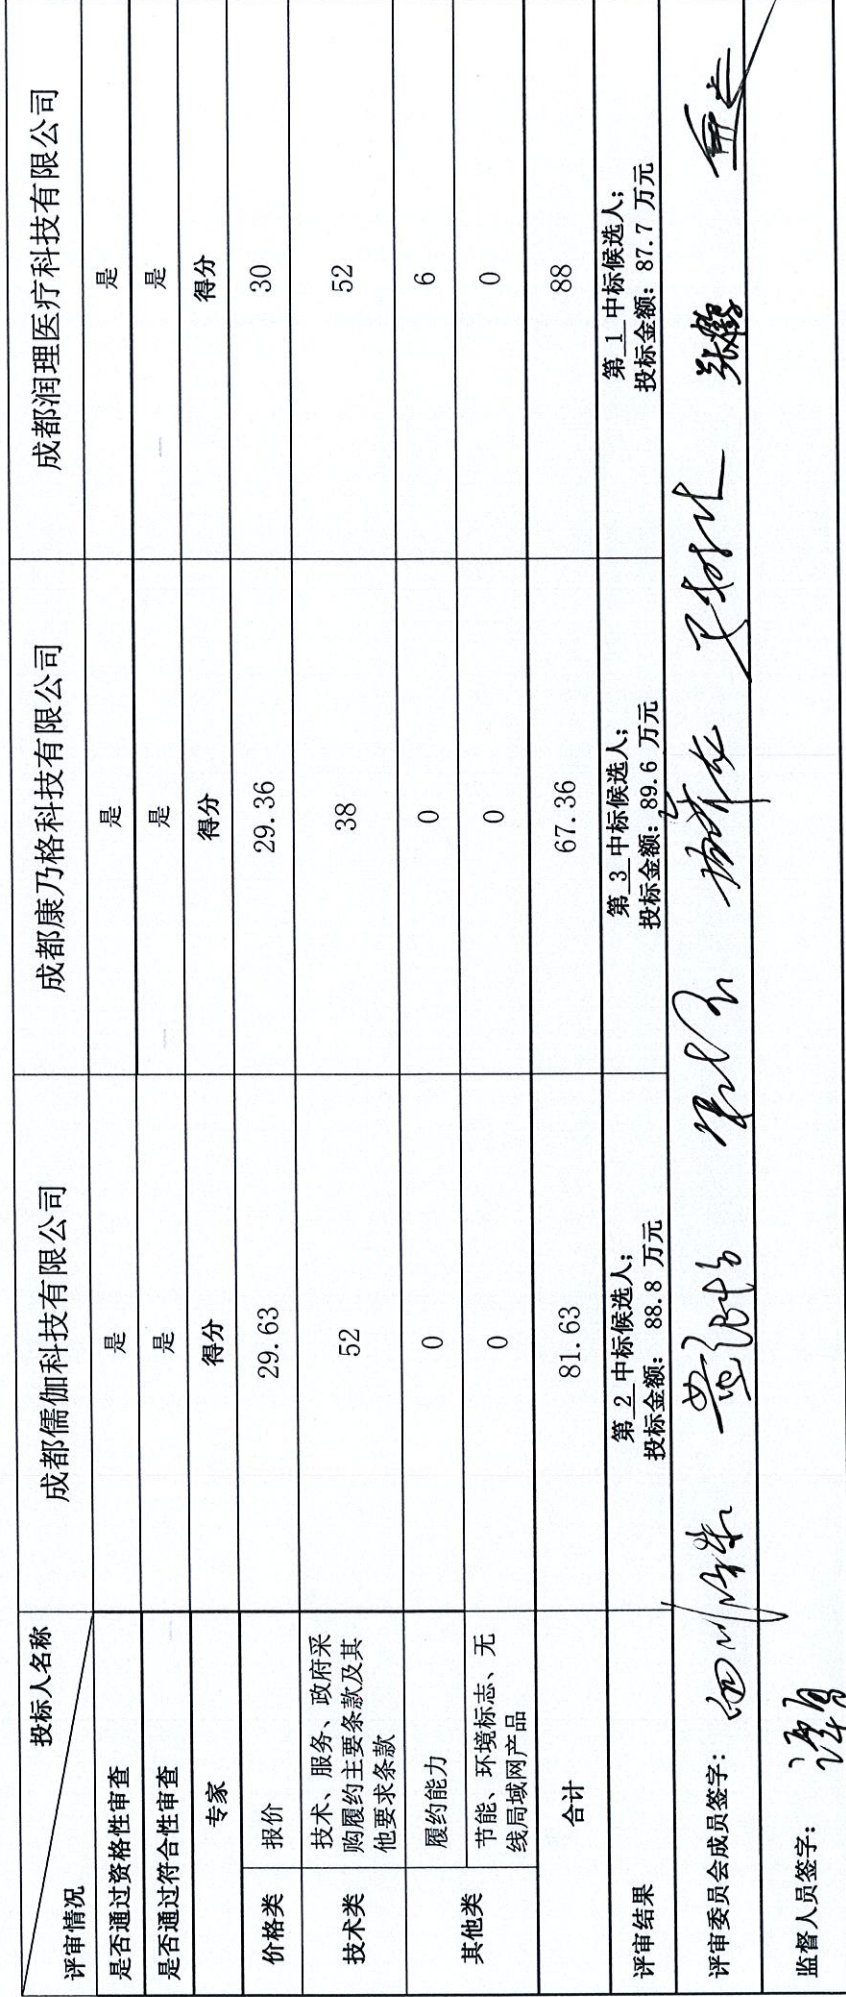 投标人名称 成都儒伽科技有限公司 成都康乃格科技有限公司 成都润理医疗科技有限公司
评审情况
是否通过资格性审查 是 是 是
是否通过符合性审查 是 是 是
专家 得分 得分 得分
价格类 报价 29.63 29.36 30
技术类 技术、服务、政府采
购履约主要条款及其
他要求条款 52 38 52
其他类 履约能力 0 0 6
节能、环境标志、无
线局域网产品 0 0 0
合计 81.63 67.36 88
评审结果 第 2 中标候选人; 第 3 中标候选人; 第 1 中标候选人;
投标金额: 88.8 万元 投标金额: 89.6 万元 投标金额: 87.7 万元
评审委员会成员签字:
监督人员签字: